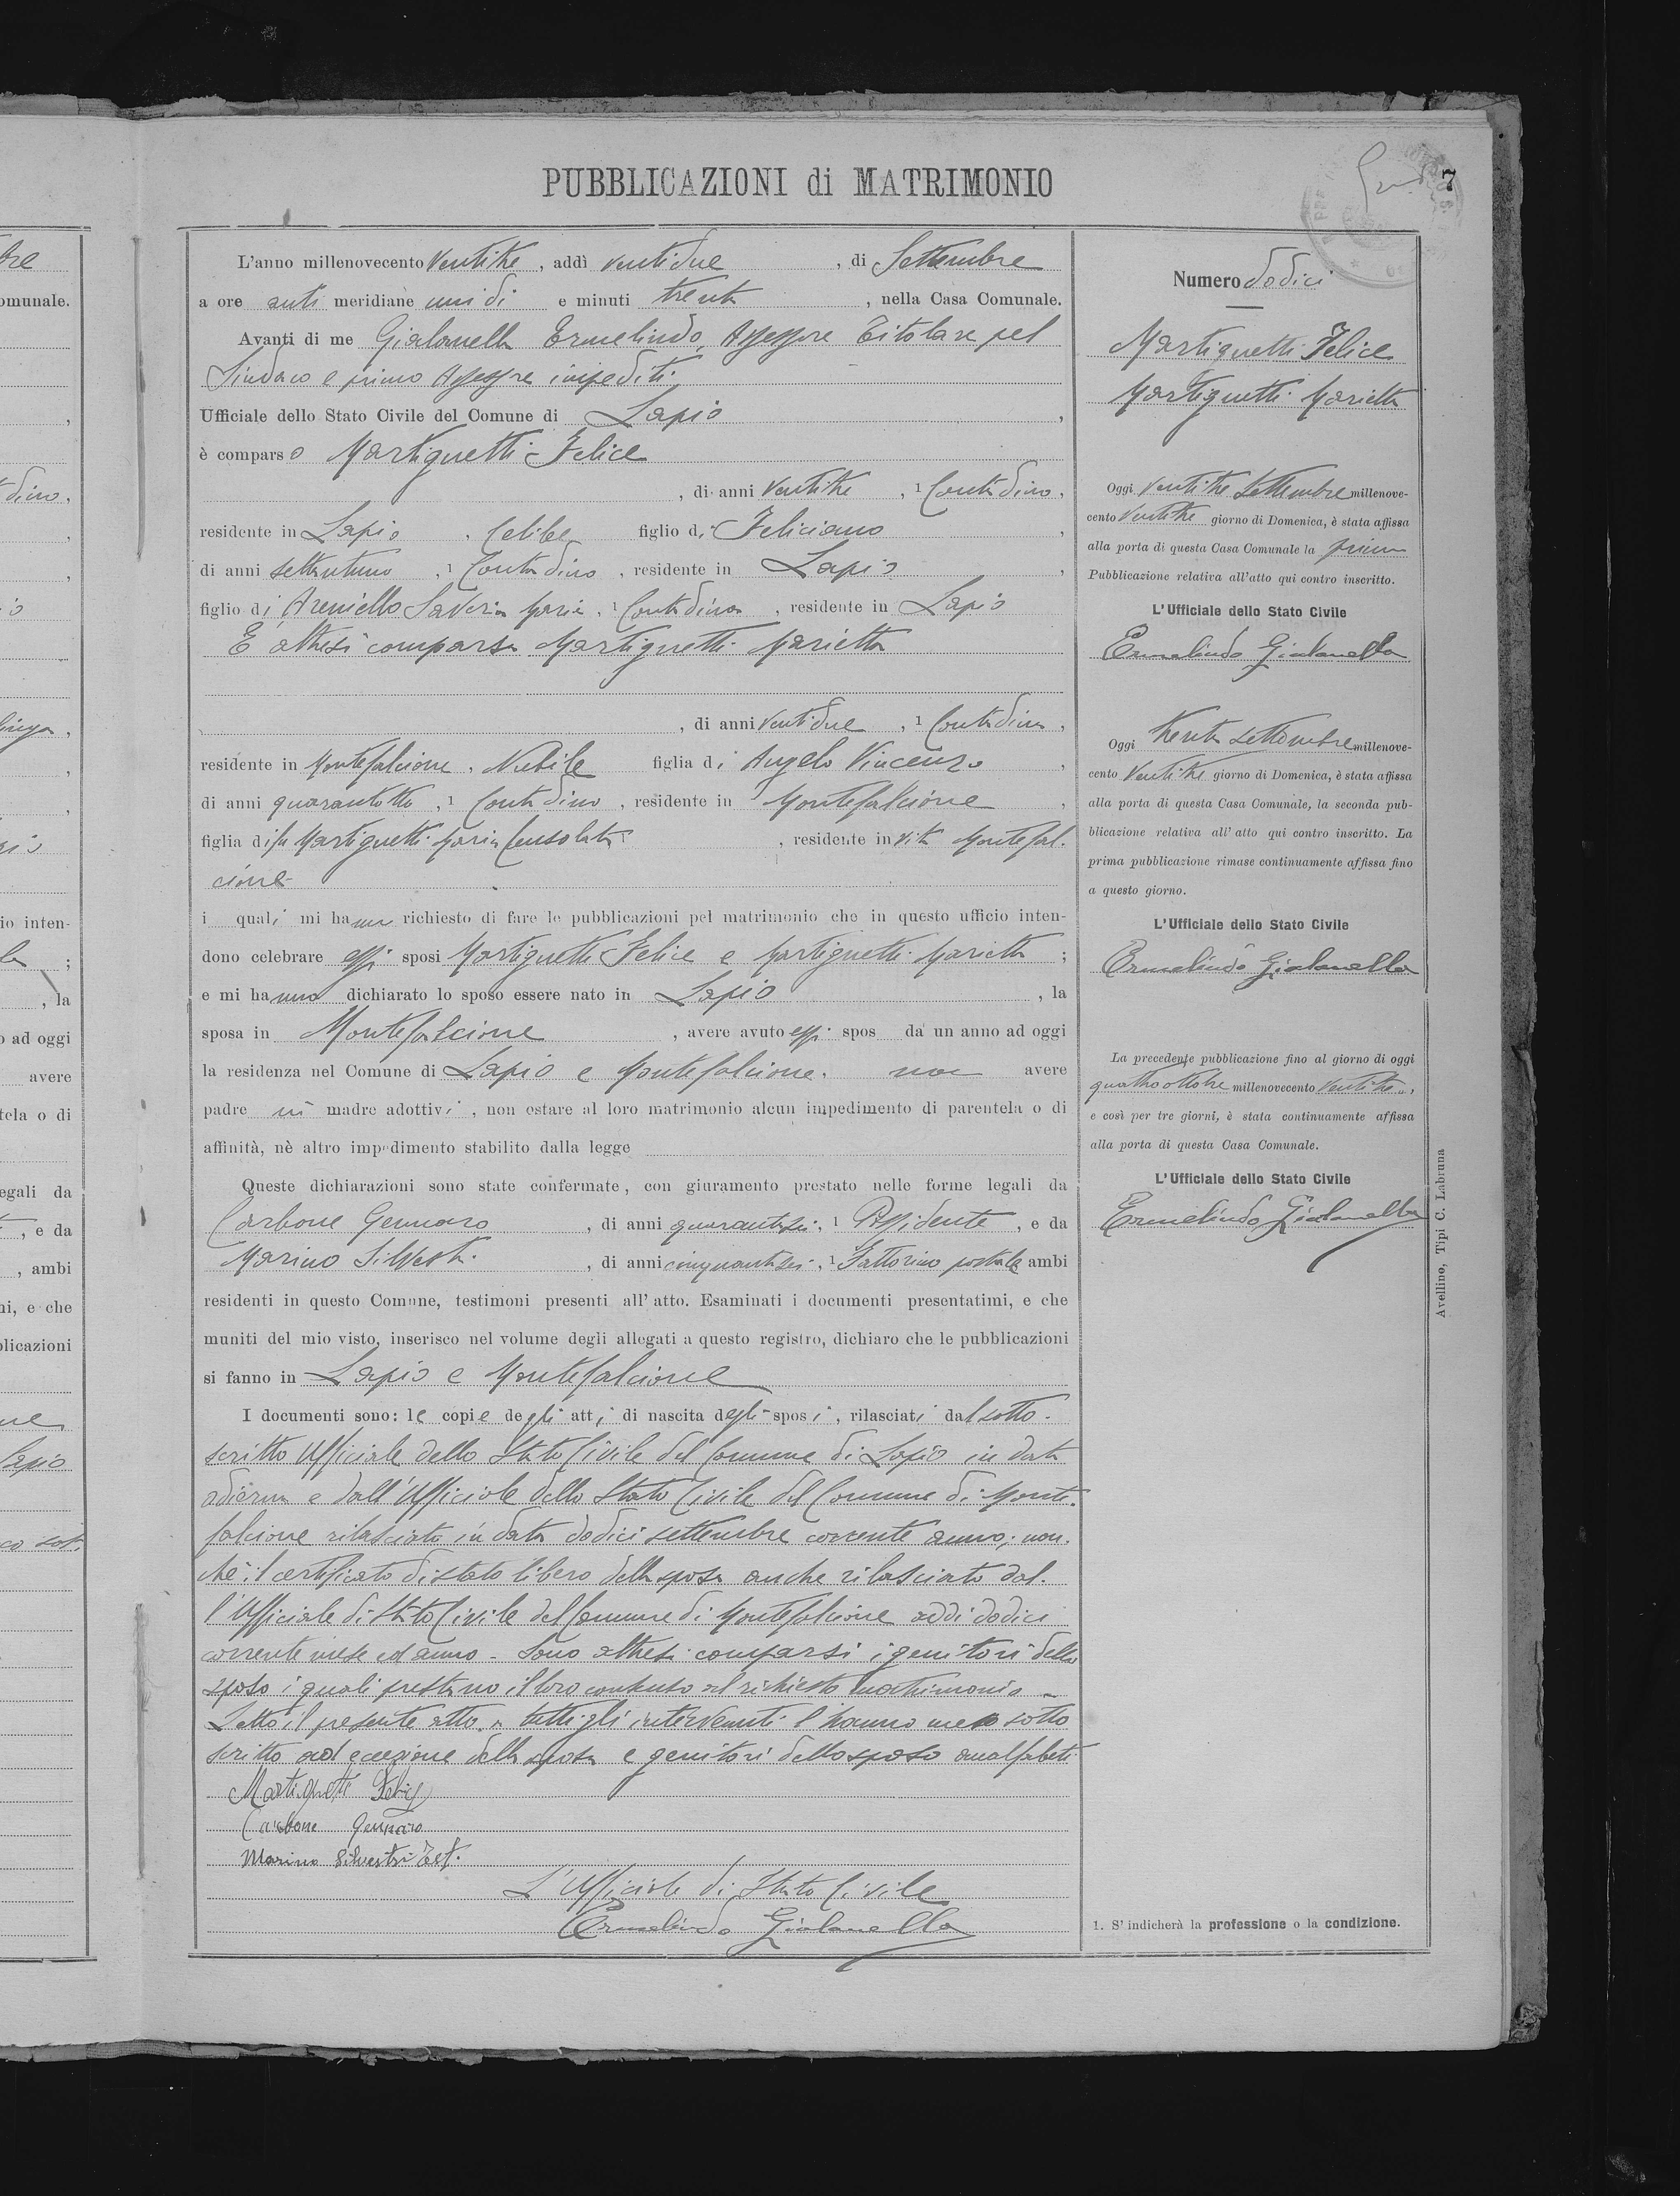 PUBBLICAZIONI di MATRIMONIO
7
L'anno millenovecento ventitre, addì ventidue, di Settembre
a ore anti meridiane undici e minuti trenta, nella Casa Comunale.
Avanti di me Gialanella Ermelindo, Assessore Titolare pel
Sindaco e primo Assessore impediti
Ufficiale dello Stato Civile del Comune di Lapio,
è comparso Martignetti Felice
, di anni ventitre, 1 Contadino,
residente in Lapio, Celibe figlio di Feliciano,
di anni settantuno, 1 Contadino, residente in Lapio,
figlio di Areniello Saveria Maria, 1 Contadina, residente in Lapio
E altresì comparsa Martignetti Marietta
, di anni ventidue, 1 Contadina,
residente in Montefalcione, Nubile figlia di Angelo Vincenzo,
di anni quarantotto, 1 Contadino, residente in Montefalcione,
figlia di fu Martignetti Maria Consolata, residente in vita Montefal-
cione
i quali mi hanno richiesto di fare le pubblicazioni pel matrimonio che in questo ufficio inten-
dono celebrare essi sposi Martignetti Felice e Martignetti Marietta;
e mi hanno dichiarato lo sposo essere nato in Lapio, la
sposa in Montefalcione, avere avuto essi spos da un anno ad oggi
la residenza nel Comune di Lapio e Montefalcione. non avere
padre nè madre adottivi, non ostare al loro matrimonio alcun impedimento di parentela o di
affinità, nè altro impedimento stabilito dalla legge
Queste dichiarazioni sono state confermate, con giuramento prestato nelle forme legali da
Carbone Gennaro, di anni quarantasei, 1 Possidente, e da
Marino Silvestri, di anni cinquantasei, 1 Fattorino postale ambi
residenti in questo Comune, testimoni presenti all'atto. Esaminati i documenti presentatimi, e che
muniti del mio visto, inserisco nel volume degli allegati a questo registro, dichiaro che le pubblicazioni
si fanno in Lapio e Montefalcione
I documenti sono: le copie degli atti di nascita degli sposi, rilasciati dal sotto-
scritto Ufficiale dello Stato Civile del Comune di Lapio in data
odierna e dall'Ufficiale dello Stato Civile del Comune di Monte-
falcione rilasciato in data dodici settembre corrente anno; non-
chè il certificato di stato libero della sposa anche rilasciato dal-
l'Ufficiale di Stato Civile del Comune di Montefalcione addì dodici
corrente mese ed anno - Sono altresì comparsi i genitori dello
sposo i quali prestano il loro consenso al richiesto matrimonio -
Letto il presente atto a tutti gli intervenuti l'hanno meco sotto
scritto ad eccezione della sposa e genitori dello sposo analfabeti
Martignetti Felice
Carbone Gennaro
Marino Silvestri Test.
L'Ufficiale di Stato Civile
Ermelindo Gialanella
Numero dodici
Martignetti Felice
Martignetti Marietta
Oggi ventitre Settembre millenove-
cento ventitre giorno di Domenica, è stata affissa
alla porta di questa Casa Comunale la prima
Pubblicazione relativa all'atto qui contro inscritto.
L'Ufficiale dello Stato Civile
Ermelindo Gialanella
Oggi trenta settembre millenove-
cento ventitre giorno di Domenica, è stata affissa
alla porta di questa Casa Comunale, la seconda pub-
blicazione relativa all'atto qui contro inscritto. La
prima pubblicazione rimase continuamente affissa fino
a questo giorno.
L'Ufficiale dello Stato Civile
Ermelindo Gialanella
La precedente pubblicazione fino al giorno di oggi
quattro ottobre millenovecento ventitre,
e così per tre giorni, è stata continuamente affissa
alla porta di questa Casa Comunale.
L'Ufficiale dello Stato Civile
Ermelindo Gialanella
1. S'indicherà la professione o la condizione.
Avellino, Tipi C. Labruna